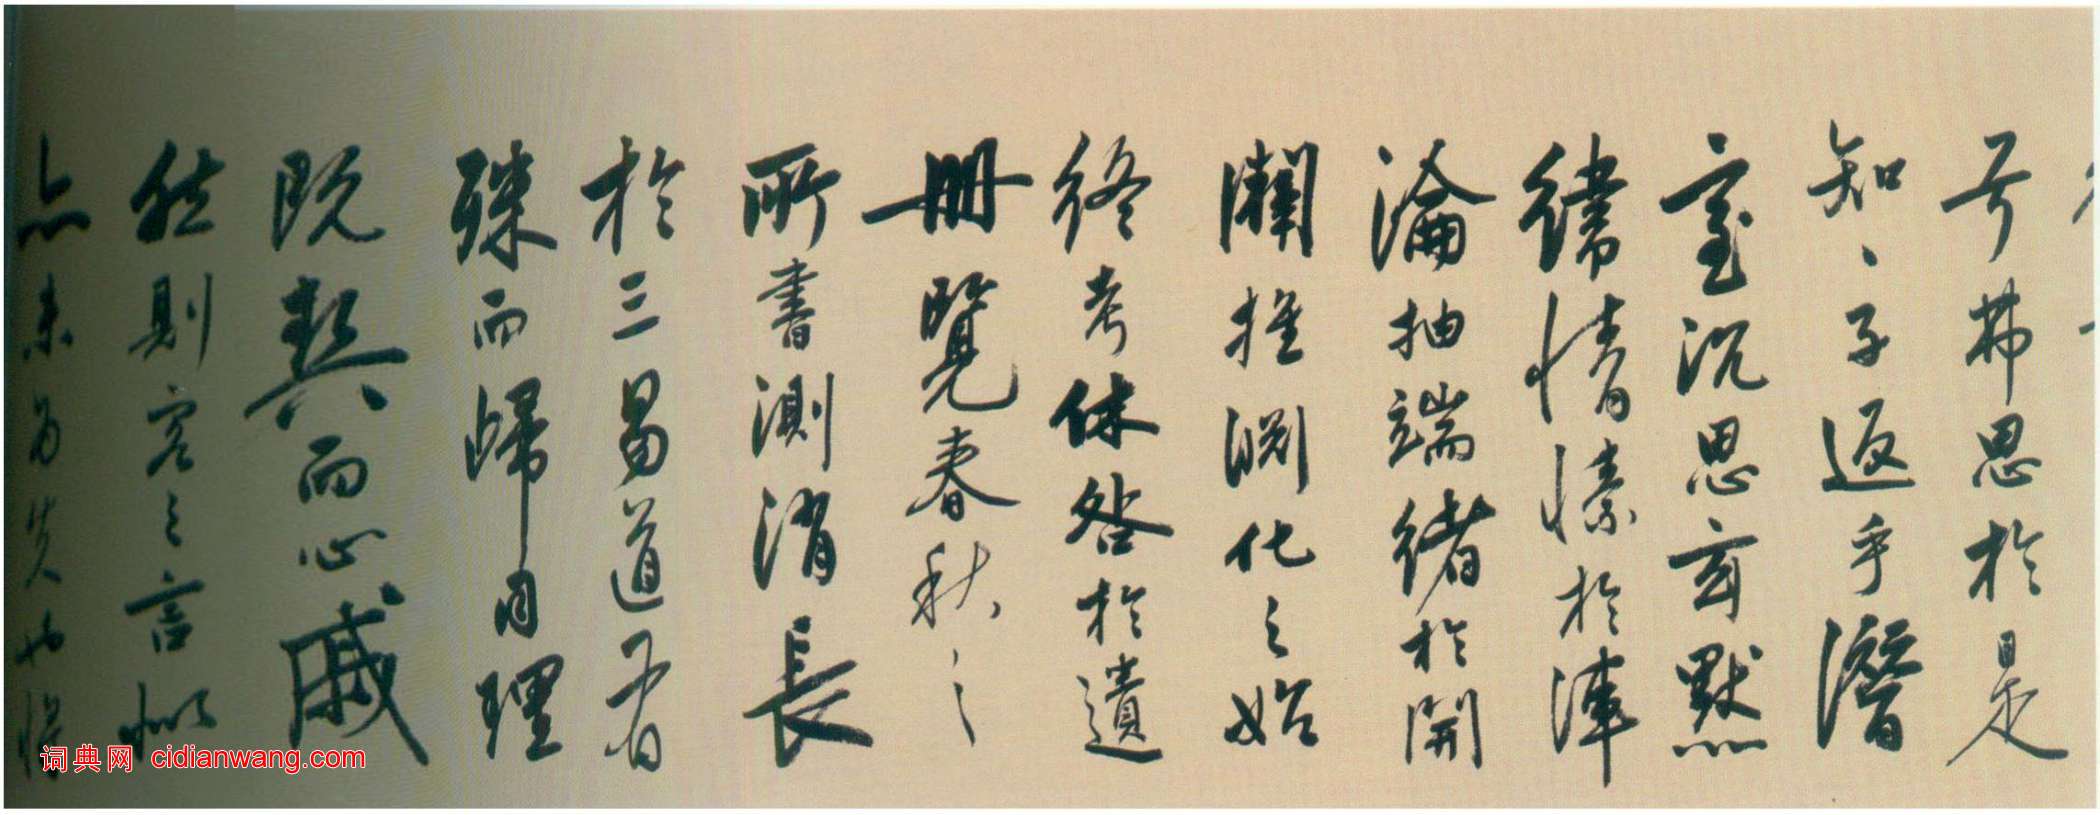 兮弗思於是
知〻子返乎潛
室沉思玄默
緯情愫於渾
淪抽端緒於開
闢推淵化之始
終考休咎於遺
冊覽春秋之
所書測消長
於三易道有
殊而歸自理
既契而心戚
然則客之言似
亦未為失也
词典网 cidianwang.com